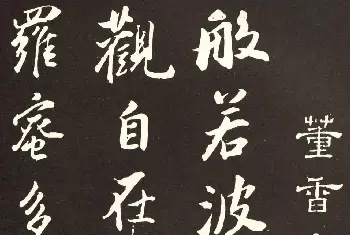 董香
般若波
觀自在
羅蜜多